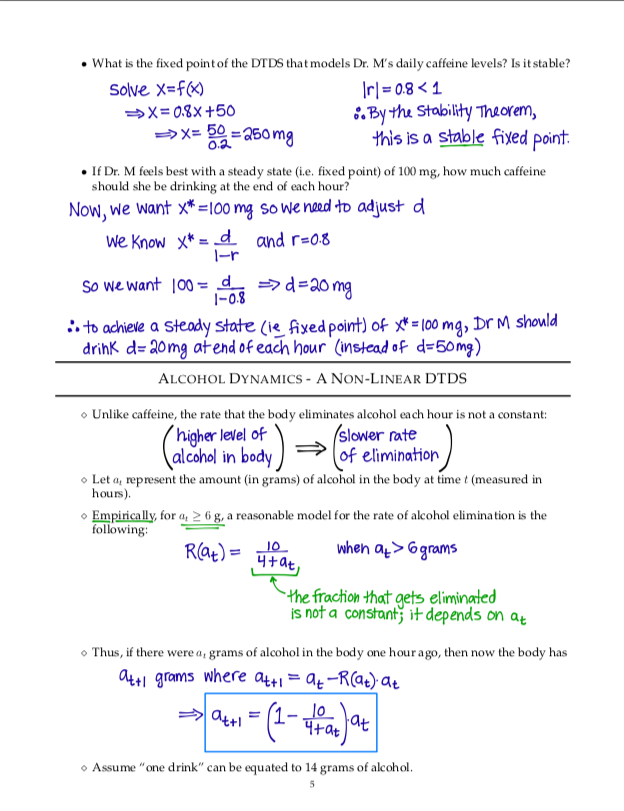 • What is the fixed point of the DTDS that models Dr. M's daily caffeine levels? Is it stable?
Solve x=f(x)
⇒ x = 0.8x+50
⇒ x = 50/0.2 = 250 mg
|r| = 0.8 < 1
∴ By the Stability Theorem,
this is a stable fixed point.
• If Dr. M feels best with a steady state (i.e. fixed point) of 100 mg, how much caffeine
should she be drinking at the end of each hour?
Now, we want x* = 100 mg so we need to adjust d
We know x* = d/(1-r) and r=0.8
So we want 100 = d/(1-0.8) ⇒ d = 20 mg
∴ to achieve a steady state (ie fixed point) of x* = 100 mg, Dr M should
drink d = 20mg at end of each hour (instead of d=50mg)
ALCOHOL DYNAMICS - A NON-LINEAR DTDS
⋄ Unlike caffeine, the rate that the body eliminates alcohol each hour is not a constant:
(higher level of alcohol in body) ⇒ (slower rate of elimination)
⋄ Let aₜ represent the amount (in grams) of alcohol in the body at time t (measured in
hours).
⋄ Empirically, for aₜ ≥ 6 g, a reasonable model for the rate of alcohol elimination is the
following:
R(aₜ) = 10/(4+aₜ) when aₜ > 6 grams
the fraction that gets eliminated
is not a constant; it depends on aₜ
⋄ Thus, if there were aₜ grams of alcohol in the body one hour ago, then now the body has
aₜ₊₁ grams where aₜ₊₁ = aₜ - R(aₜ)·aₜ
⇒ aₜ₊₁ = (1 - 10/(4+aₜ))·aₜ
⋄ Assume "one drink" can be equated to 14 grams of alcohol.
5